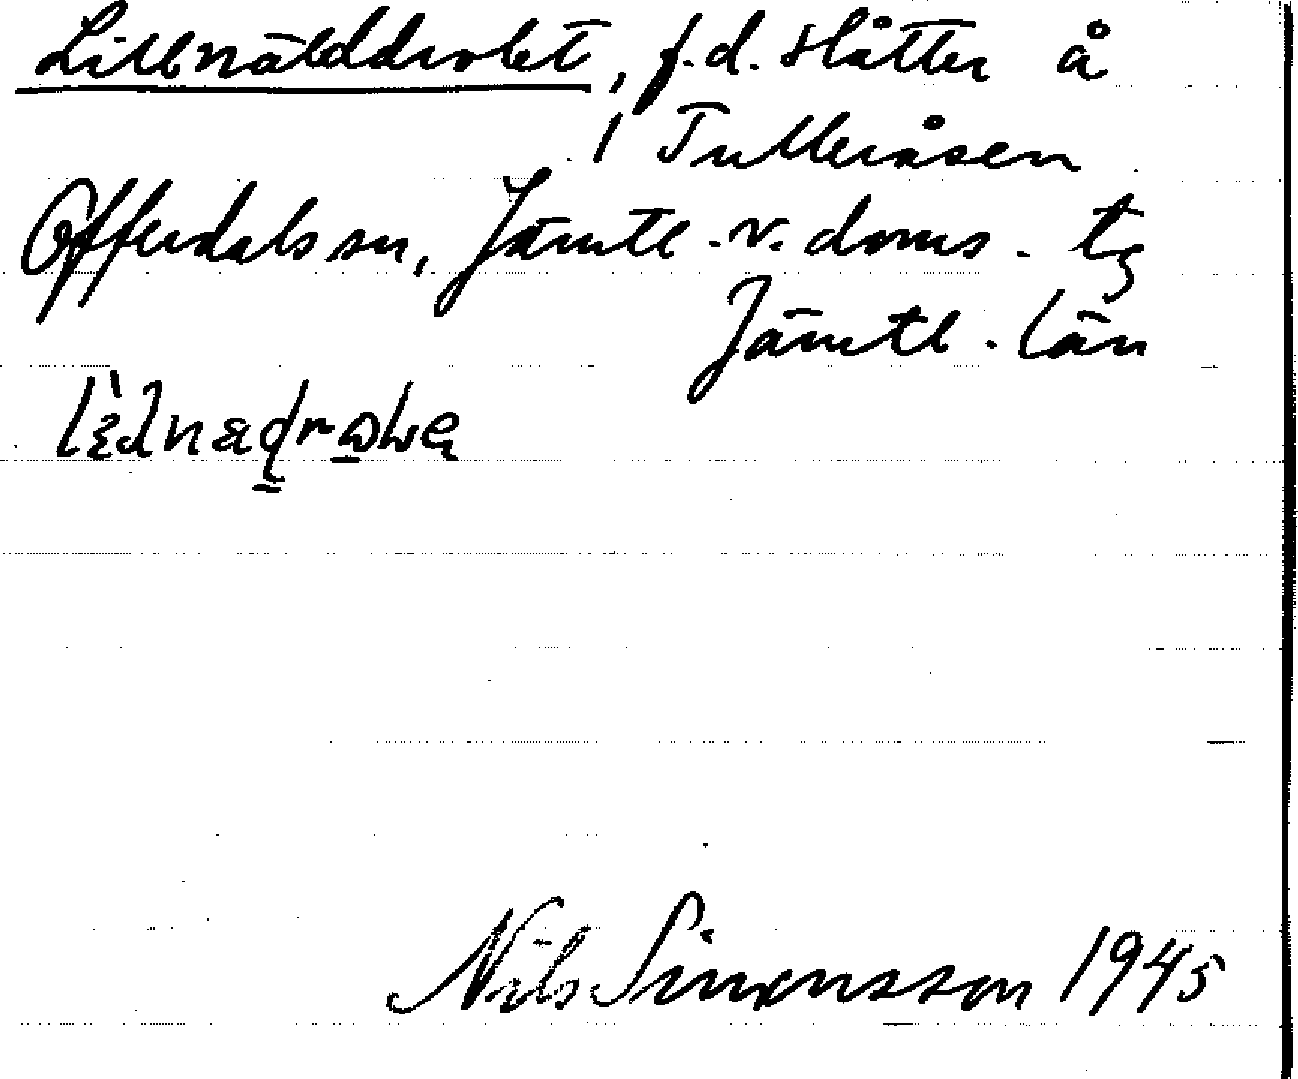 Lillnälddrolet, f.d. slåtter å
1 Tulleråsen
Offerdals sn, Jämtl. v. doms. tg
Jämtl. län
Nils Simonsson 1945